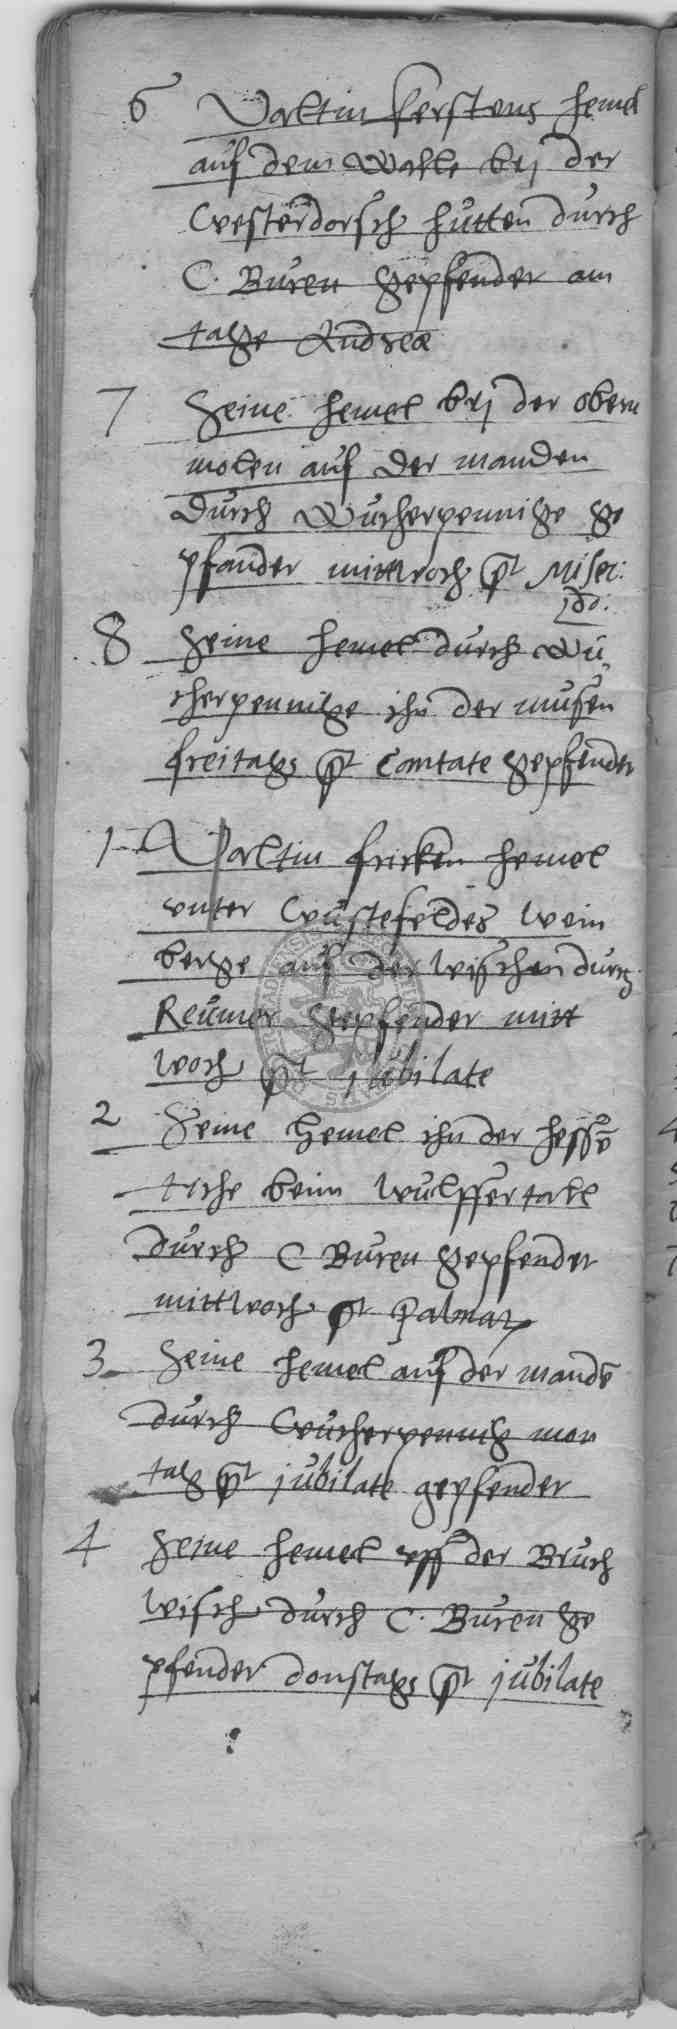 6 Valtin Kerstens hemel
auf dem Walle bej der
Westerdorsch hutten durch
C. Buren gepfendet am
tage Andreæ
7 Seine hemel bej der obern
molen auf der manden
durch Wucherpennige ge
pfandet mittwoch pt Miser:
do:
8 Seine hemel durch Wu
cherpennige ihn der musen
freitags pt Cantate gepfendet
1 Valtin fricken hemel
unter Wustefeldes wein
berge auf der wischen durch
Reumer gepfendet mitt
woch pt jubilate
2 Seine hemel ihn der hessē
beim
durch C Buren gepfendet
mittwoch pt palmar
3 Seine hemel auf der mandē
durch Wucherpennig mon
tag pt jubilate gepfendet
4 Seine hemel uff der Bruch
wisch durch C. Buren ge
pfendet donstags pt jubilate